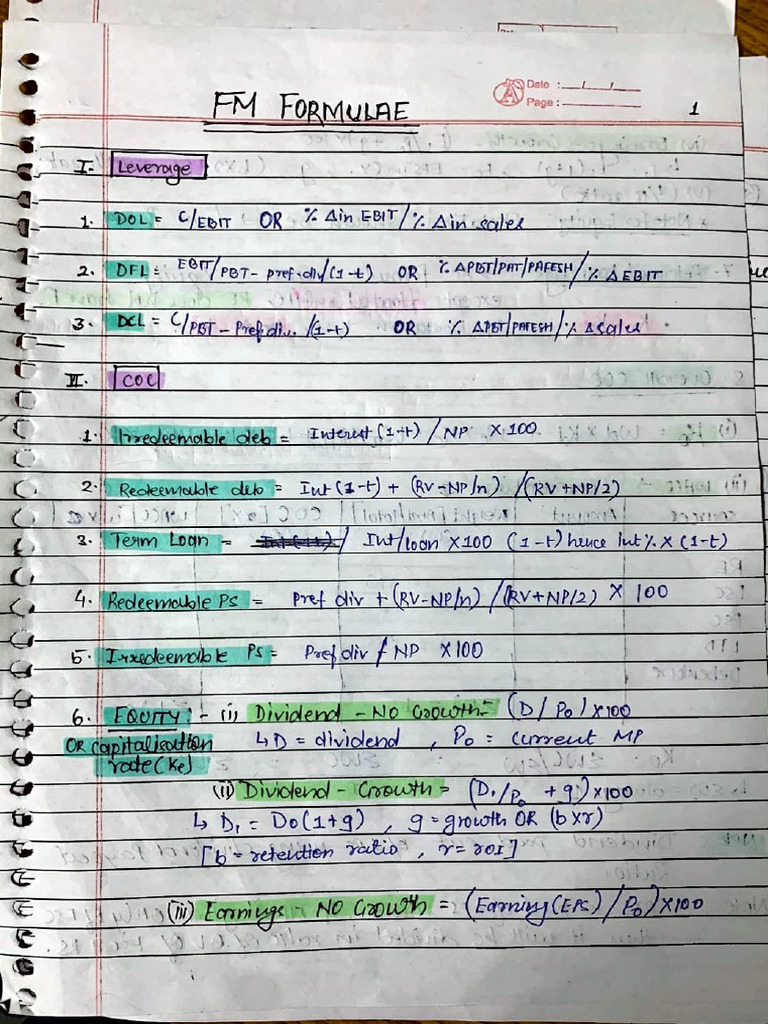 Date :
Page :
FM FORMULAE
1
I. Leverage
1. DOL = C/EBIT OR % Δ in EBIT / % Δ in sales
2. DFL = EBIT/PBT - pref.div/(1-t) OR % ΔPBT/PAT/PAFESH / % Δ EBIT
3. DCL = C/PBT - Pref di.. /(1-t) OR % ΔPBT/PAFESH / % Δ sales
II. COC
1. Irredeemable deb = Interest (1-t) / NP X 100
2. Redeemable deb = Int (1-t) + (RV-NP/n) /(RV+NP/2)
3. Term Loan = / Int/loan X 100 (1-t) hence int % X (1-t)
4. Redeemable PS = Pref div + (RV-NP/n) /(RV+NP/2) X 100
5. Irredeemable PS = Pref div / NP X 100
6. EQUITY :- (i) Dividend - No Growth = (D/P₀) X 100
OR capitalisation ↳ D = dividend , P₀ = current MP
rate (Ke)
(ii) Dividend - Growth = (D₁/P₀ + g) X 100
↳ D₁ = D₀(1+g) , g = growth OR (b X r)
[b = retention ratio , r = ROI]
(iii) Earnings - No Growth = (Earning (EPS) / P₀) X 100